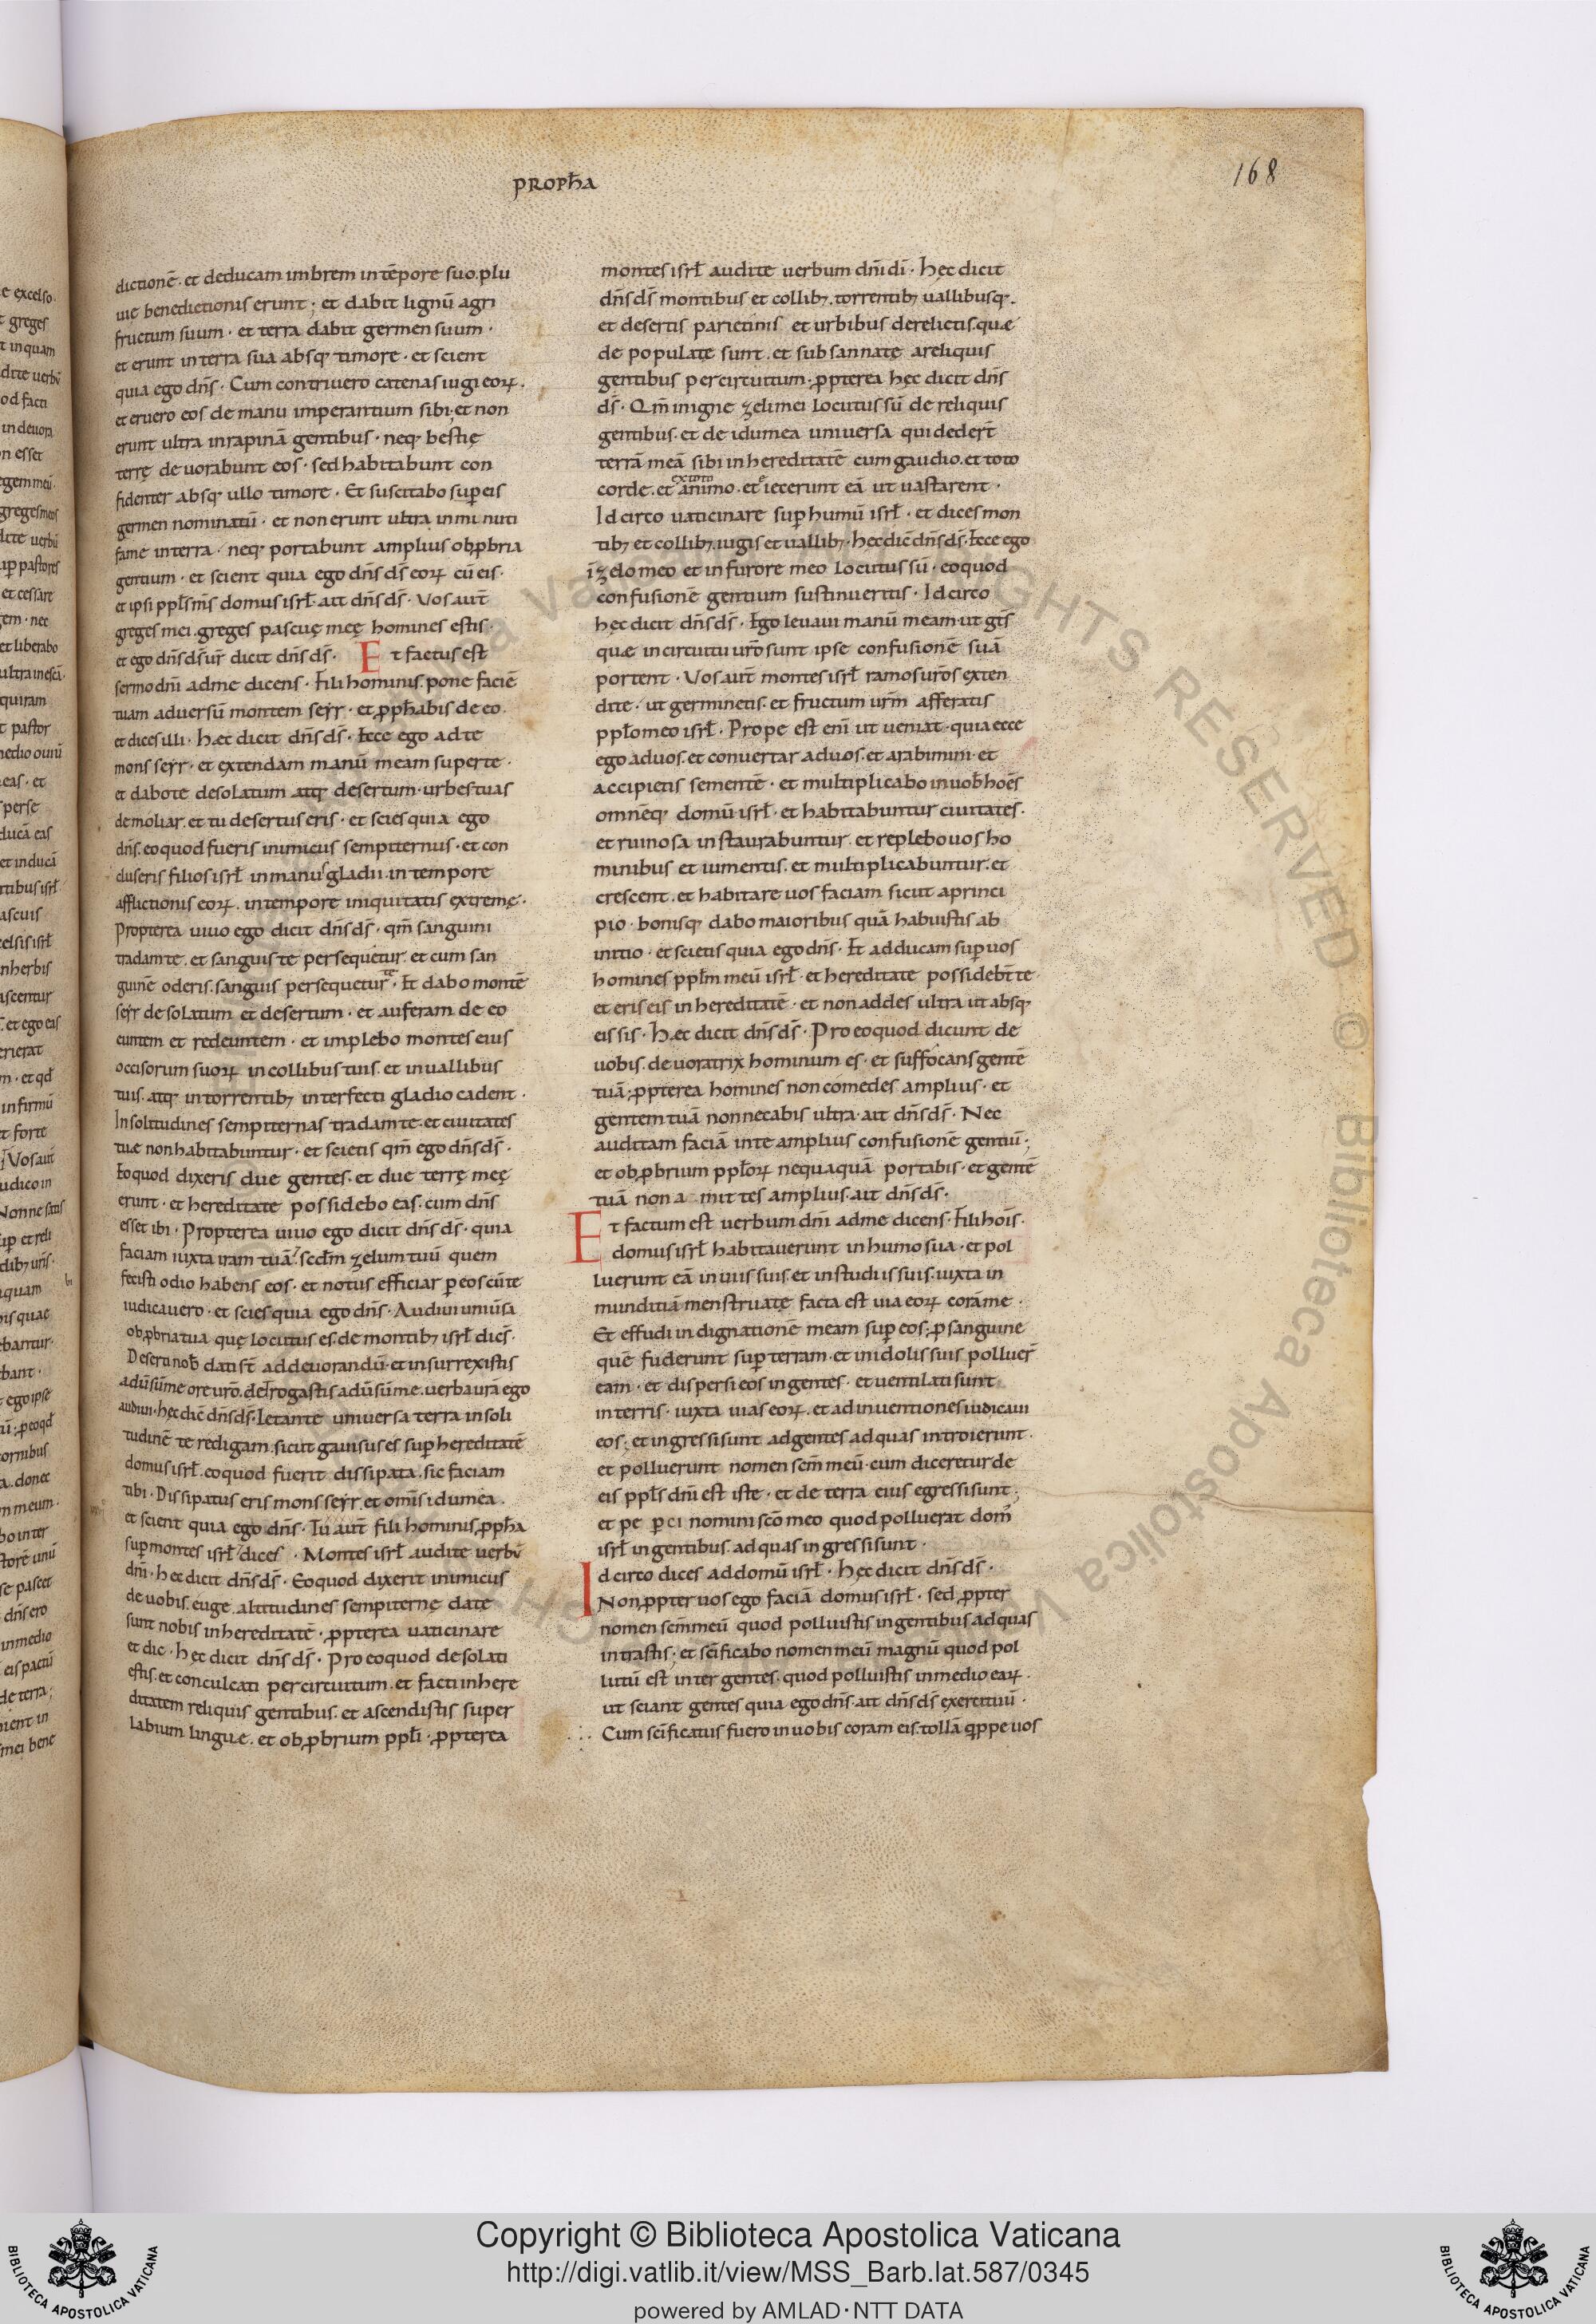 PROPH̄A
168
dictionē. et deducam imbrem in tēpore suo. plu
uie benedictionis erunt; et dabit lignū agri
fructum suum · et terra dabit germen suum ·
et erunt in terra sua absq; timore · et scient
quia ego dn̄s · Cum contriuero catenas iugi eoꝝ ·
et eruero eos de manu imperantium sibi · et non
erunt ultra in rapinā gentibus · neq; bestię
terrę deuorabunt eos · sed habitabunt con
fidenter absq; ullo timore · Et suscitabo sup̄ eis
germen nominatū · et non erunt ultra inminuti
fame in terra · neq; portabunt amplius obꝓbria
gentium · et scient quia ego dn̄s ds̄ eoꝝ cū eis ·
et ipsi ppl̄s ms̄ domus isrl̄ · ait dn̄s ds̄ · Vos aut̄
greges mei · greges pascuę meę homines estis ·
et ego dn̄s ds̄ ur̄ dicit dn̄s ds̄ · Et factus est
sermo dn̄i ad me dicens · Fili hominis pone faciē
tuam aduersū montem seyr · et ꝓph̄abis de eo ·
et dices illi · Hæc dicit dn̄s ds̄ · Ecce ego ad te
mons seyr · et extendam manū meam super te ·
et dabo te desolatum atq; desertum · urbes tuas
demoliar. et tu desertus eris · et scies quia ego
dn̄s. eo quod fueris inimicus sempiternus · et con
cluseris filios isrl̄ in manus gladii · in tempore
afflictionis eoꝝ . in tempore iniquitatis extremę ·
Propterea uiuo ego dicit dn̄s ds̄ · qm̄ sanguini
tradam te. et sanguis te persequetur · et cum san
guinē oderis. sanguis persequetur te · Et dabo montē
seyr desolatum et desertum · et auferam de eo
euntem et redeuntem · et implebo montes eius
occisorum suoꝝ in collibus tuis. et in uallibus
tuis. atq; in torrentibꝫ interfecti gladio cadent ·
In solitudines sempiternas tradam te · et ciuitates
tuæ non habitabuntur · et scietis qm̄ ego dn̄s ds̄ ·
Eo quod dixeris due gentes. et due terrę meę
erunt · et hereditate possidebo eas. cum dn̄s
esset ibi · Propterea uiuo ego dicit dn̄s ds̄ · quia
faciam iuxta iram tuā. scdm̄ zelum tuū quem
fecisti odio habens eos · et notus efficiar p̄ eos cū te
iudicauero · et scies quia ego dn̄s · Audiui uniūsa
obꝓbria tua quę locutus es. de montibꝫ isrl̄ dics̄ ·
Deserti nob̄ dati st̄ ad deuorandū · et insurrexistis
adūsū me ore uro · derogastis adūsū me. uerba urā ego
audiui · hęc dic̄ dn̄s ds̄ · Letante uniuersa terra in soli
tudinē te redigam. sicut gauisus es sup̄ hereditatē
domus isrl̄. eo quod fuerit dissipata. sic faciam
tibi · Dissipatus eris mons seyr. et omīs idumea ·
et scient quia ego dn̄s · Tu aut̄ fili hominis ꝓph̄a
sup̄ montes isrl̄ dices · Montes isrl̄ audite uerbū
dn̄i · hęc dicit dn̄s ds̄ · Eo quod dixerit inimicus
de uobis. euge. altitudines sempiternę date
sunt nobis in hereditatē · ꝓpterea uaticinare
et dic · Hęc dicit dn̄s ds̄ · Pro eo quod desolati
estis. et conculcati per circuitum. et facti in here
ditatem reliquis gentibus. et ascendistis super
labium linguæ. et obꝓbrium ppl̄i · ꝓpterea
montes isrl̄ audite uerbum dn̄i dī · Hęc dicit
dn̄s ds̄ montibus et collibꝫ. torrentibꝫ uallibusq;.
et desertis parietinis et urbibus derelictis. quæ
depopulatę sunt. et subsannatę a reliquis
gentibus per circuitum · ꝓpterea hęc dicit dn̄s
ds̄ · Qm̄ in igne zeli mei locutus sū de reliquis
gentibus. et de idumea uniuersa qui dedert̄
terrā meā sibi in hereditatē cum gaudio. et toto
corde. et ex toto animo. et eiecerunt eā ut uastarent ·
Idcirco uaticinare sup̄ humū isrl̄ · et dices mon
tibꝫ et collibꝫ. iugis et uallibꝫ · hęc dic̄ dn̄s ds̄ · Ecce ego
ī zelo meo et in furore meo locutus sū · eo quod
confusionē gentium sustinueritis · Idcirco
hęc dicit dn̄s ds̄ · Ego leuaui manū meam · ut gt̄s
quæ in circuitu uro sunt ipse confusionē suā
portent · Vos aut̄ montes isrl̄ ramos uros exten
dite · ut germinetis. et fructum urm̄ afferatis
ppl̄o meo isrl̄ · Prope est enī ut ueniat · quia ecce
ego ad uos. et conuertar ad uos. et arabimini · et
accipietis sementē · et multiplicabo in uob̄ hoēs
omnēq; domū isrl̄ · et habitabuntur ciuitates ·
et ruinosa instaurabuntur · et replebo uos ho
minibus et iumentis. et multiplicabuntur. et
crescent. et habitare uos faciam sicut a princi
pio · bonisq; dabo maioribus quā habuistis ab
initio · et scietis quia ego dn̄s · Et adducam sup̄ uos
homines ppl̄m meū isrl̄ · et hereditate possidebt̄ te ·
et eris eis in hereditatē · et non addes ultra ut absq;
eis sis · Hæc dicit dn̄s ds̄ · Pro eo quod dicunt de
uobis. deuoratrix hominum es · et suffocans gentē
tuā; ꝓpterea homines non comedes amplius · et
gentem tuā non necabis ultra · ait dn̄s ds̄ · Nec
auditam faciā in te amplius confusionē gentiū;
et obꝓbrium ppl̄oꝝ nequaquā portabis · et gentē
tuā non a mittes amplius. ait dn̄s ds̄ ·
Et factum est uerbum dn̄i ad me dicens · Fili hois̄ ·
domus isrl̄ habitauerunt in humo sua · et pol
luerunt eā in uiis suis. et in studiis suis · iuxta in
munditiā menstruatę facta est uia eoꝝ corā me ·
Et effudi indignationē meam sup̄ eos; ꝓ sanguine
quē fuderunt sup̄ terram · et in idolis suis polluer̄
eam · et dispersi eos in gentes · et uentilati sunt
in terris · iuxta uias eoꝝ. et adinuentiones iudicaui
eos; et ingressi sunt ad gentes ad quas introierunt ·
et polluerunt nomen scm̄ meū · cum diceretur de
eis ppl̄s dn̄i est iste · et de terra eius egressi sunt;
et pe perci nomini scō meo quod polluerat dom̄
isrl̄ in gentibus. ad quas ingressi sunt ·
Idcirco dices ad domū isrl̄ · Hęc dicit dn̄s ds̄ ·
Non ꝓpter uos ego faciā domus isrl̄ · sed ꝓpter
nomen scm̄ meū quod polluistis in gentibus ad quas
intrastis; et scīficabo nomen meū magnū quod pol
lutū est inter gentes. quod polluistis in medio eaꝝ ·
ut sciant gentes quia ego dn̄s · ait dn̄s ds̄ exercituū ·
Cum scīficatus fuero in uobis coram eis. tollā q̄ppe uos
Copyright © Biblioteca Apostolica Vaticana
http://digi.vatlib.it/view/MSS_Barb.lat.587/0345
powered by AMLAD·NTT DATA